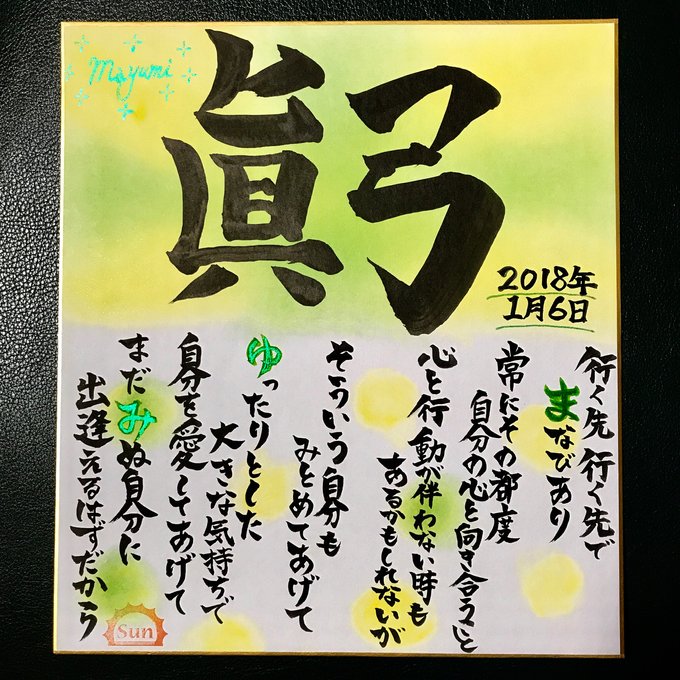 Mayumi
眞弓
2018年
1月6日
行く先行く先で
まなびあり
常にその都度
自分の心と向き合うこと
心と行動が伴わない時も
あるかもしれないが
そういう自分も
みとめてあげて
ゆったりとした
大きな気持ちで
自分を愛してあげて
まだみぬ自分に
出逢えるはずだから
Sun